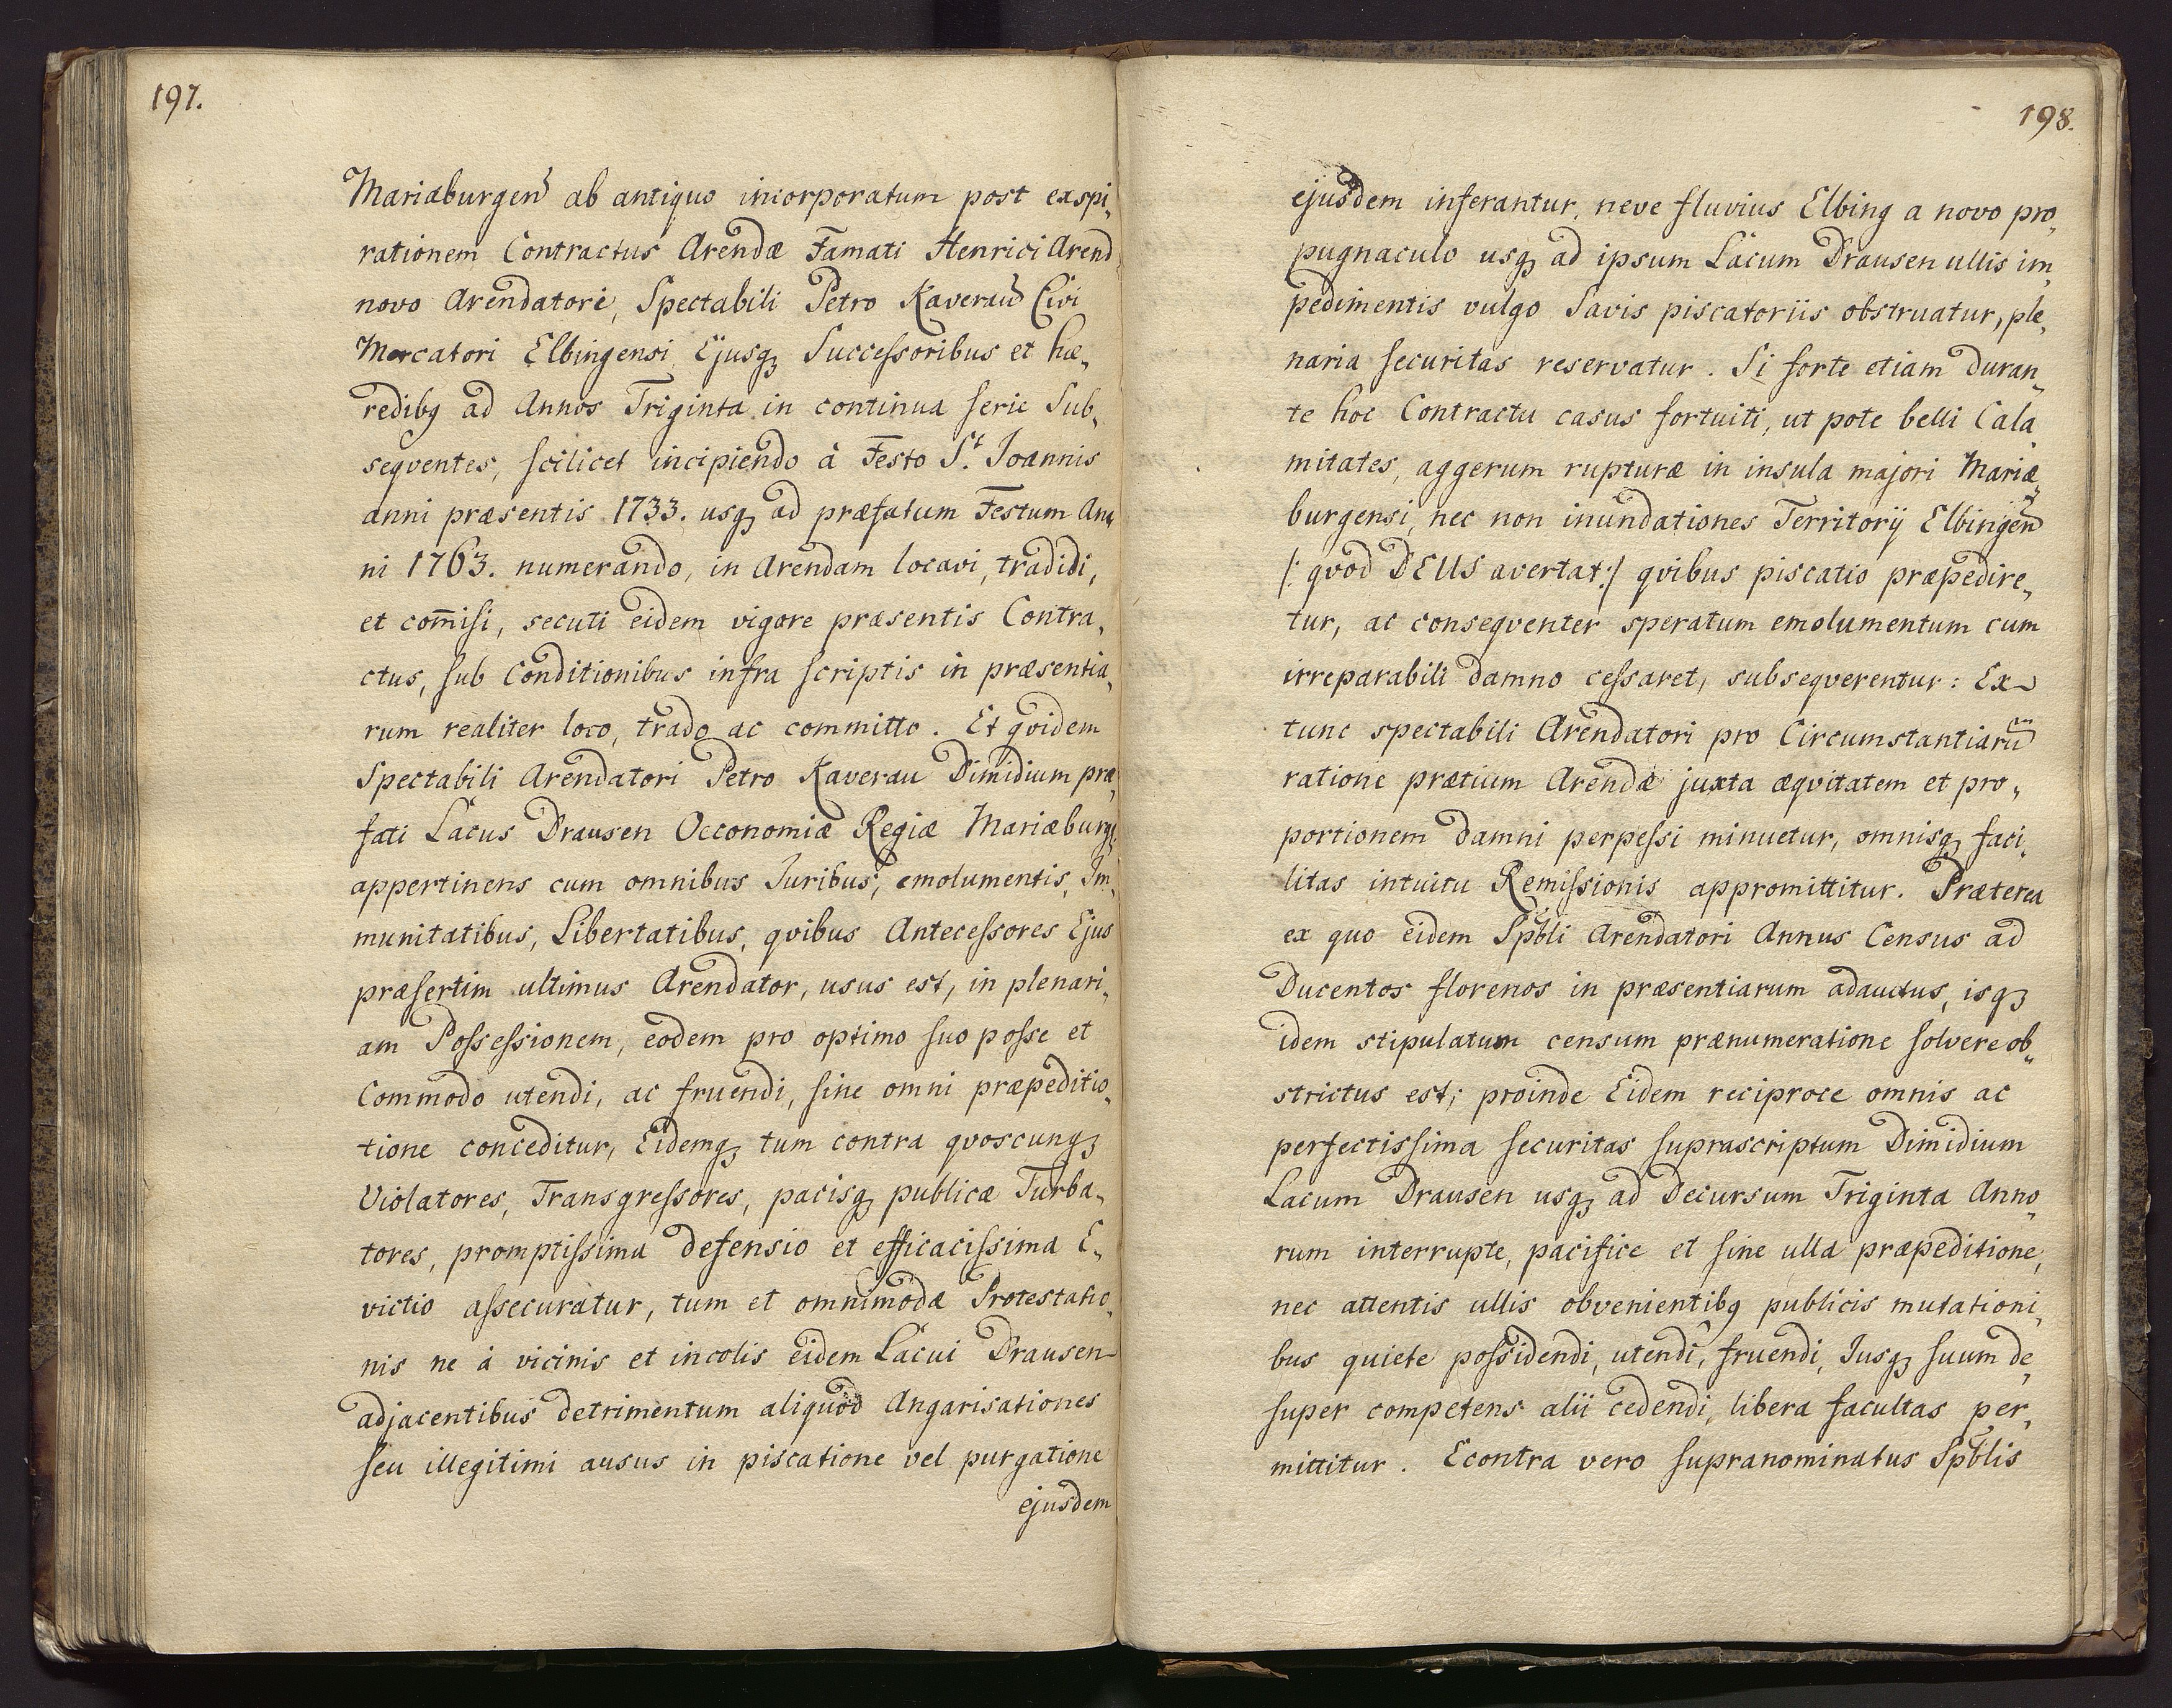 197.
Mariæburgen̄ ab antiquo incorporatum post exspi„
rationem Contractus Arendæ Famati Henrici Arend
novo Arendatori, Spectabili Petro Kaverau Civi
Mercatori Elbingensi Ejusq₃ Successoribus et hæ„
redibq ad Annos Triginta in continua serie Sub„
seqventes, scilicet incipiendo à Festo S.t Joannis
anni præsentis 1733. usq₃ ad præfatum Festum An„
ni 1763. numerando, in Arendam locavi, tradidi,
et com̄isi, secuti eidem vigore præsentis Contra„
ctus, sub Conditionibus infra scriptis in præsentia„
rum realiter loco, trado ac committo. Et qvidem
Spectabili Arendatori Petro Kaverau Dimidium præ„
fati Lacus Drausen Oeconomiæ Regiæ Mariæburg:
appertinens cum omnibus Juribus, emolumentis, Im„
munitatibus, Libertatibus, qvibus Antecessores Ejus
præsertim ultimus Arendator, usus est, in plenari„
am Possessionem, eodem pro optimo suo posse et
Commodo utendi, ac fruendi, sine omni præpeditio„
tione conceditur, Eidemq₃ tum contra qvoscunq₃
Violatores, Transgressores, pacisq₃ publicæ Turba„
tores, promptissima defensio et efficacissima E„
victio assecuratur, tum et omnimodæ Protestatio„
nis ne à vicinis et incolis eidem Lacui Drausen
adjacentibus detrimentum aliquod Angarisationes
seu illegitimi ausus in piscatione vel purgatione
ejusdem
198.
ejusdem inferantur, neve fluvius Elbing a novo pro„
pugnaculo usq₃ ad ipsum Lacum Drausen ullis im„
pedimentis vulgo Savis piscatoriis obstruatur, ple„
naria securitas reservatur. Si forte etiam duran„
te hoc Contractu casus fortuiti, ut pote belli Cala„
mitates, aggerum rupturæ in insula majori Mariæ„
burgensi, nec non inundationes Territorij Elbingen̄
/: qvod DEUS avertat :/ qvibus piscatio præpedire„
tur, ac conseqventer speratum emolumentum cum
irreparabili damno cessaret, subseqverentur: Ex
tunc spectabili Arendatori pro Circumstantiarū
ratione prætium Arendæ juxta æqvitatem et pro„
portionem damni perpessi minuetur, omnisq₃ faci„
litas intuitu Remissionis appromittitur. Præterea
ex quo eidem Spbli Arendatori Annus Census ad
Ducentos florenos in præsentiarum adauctus, isq₃
idem stipulatum censum prænumeratione solvere ob„
strictus est; proinde Eidem reciproce omnis ac
perfectissima securitas suprascriptum Dimidium
Lacum Drausen usq₃ ad Decursum Triginta Anno„
rum interrupte, pacifice et sine ulla præpeditione,
nec attentis ullis obvenientibq publicis mutationi„
bus quiete possidendi, utendi, fruendi, Jusq₃ suum de„
super competens alii cedendi, libera facultas per„
mittitur. Econtra vero supranominatus Spblis